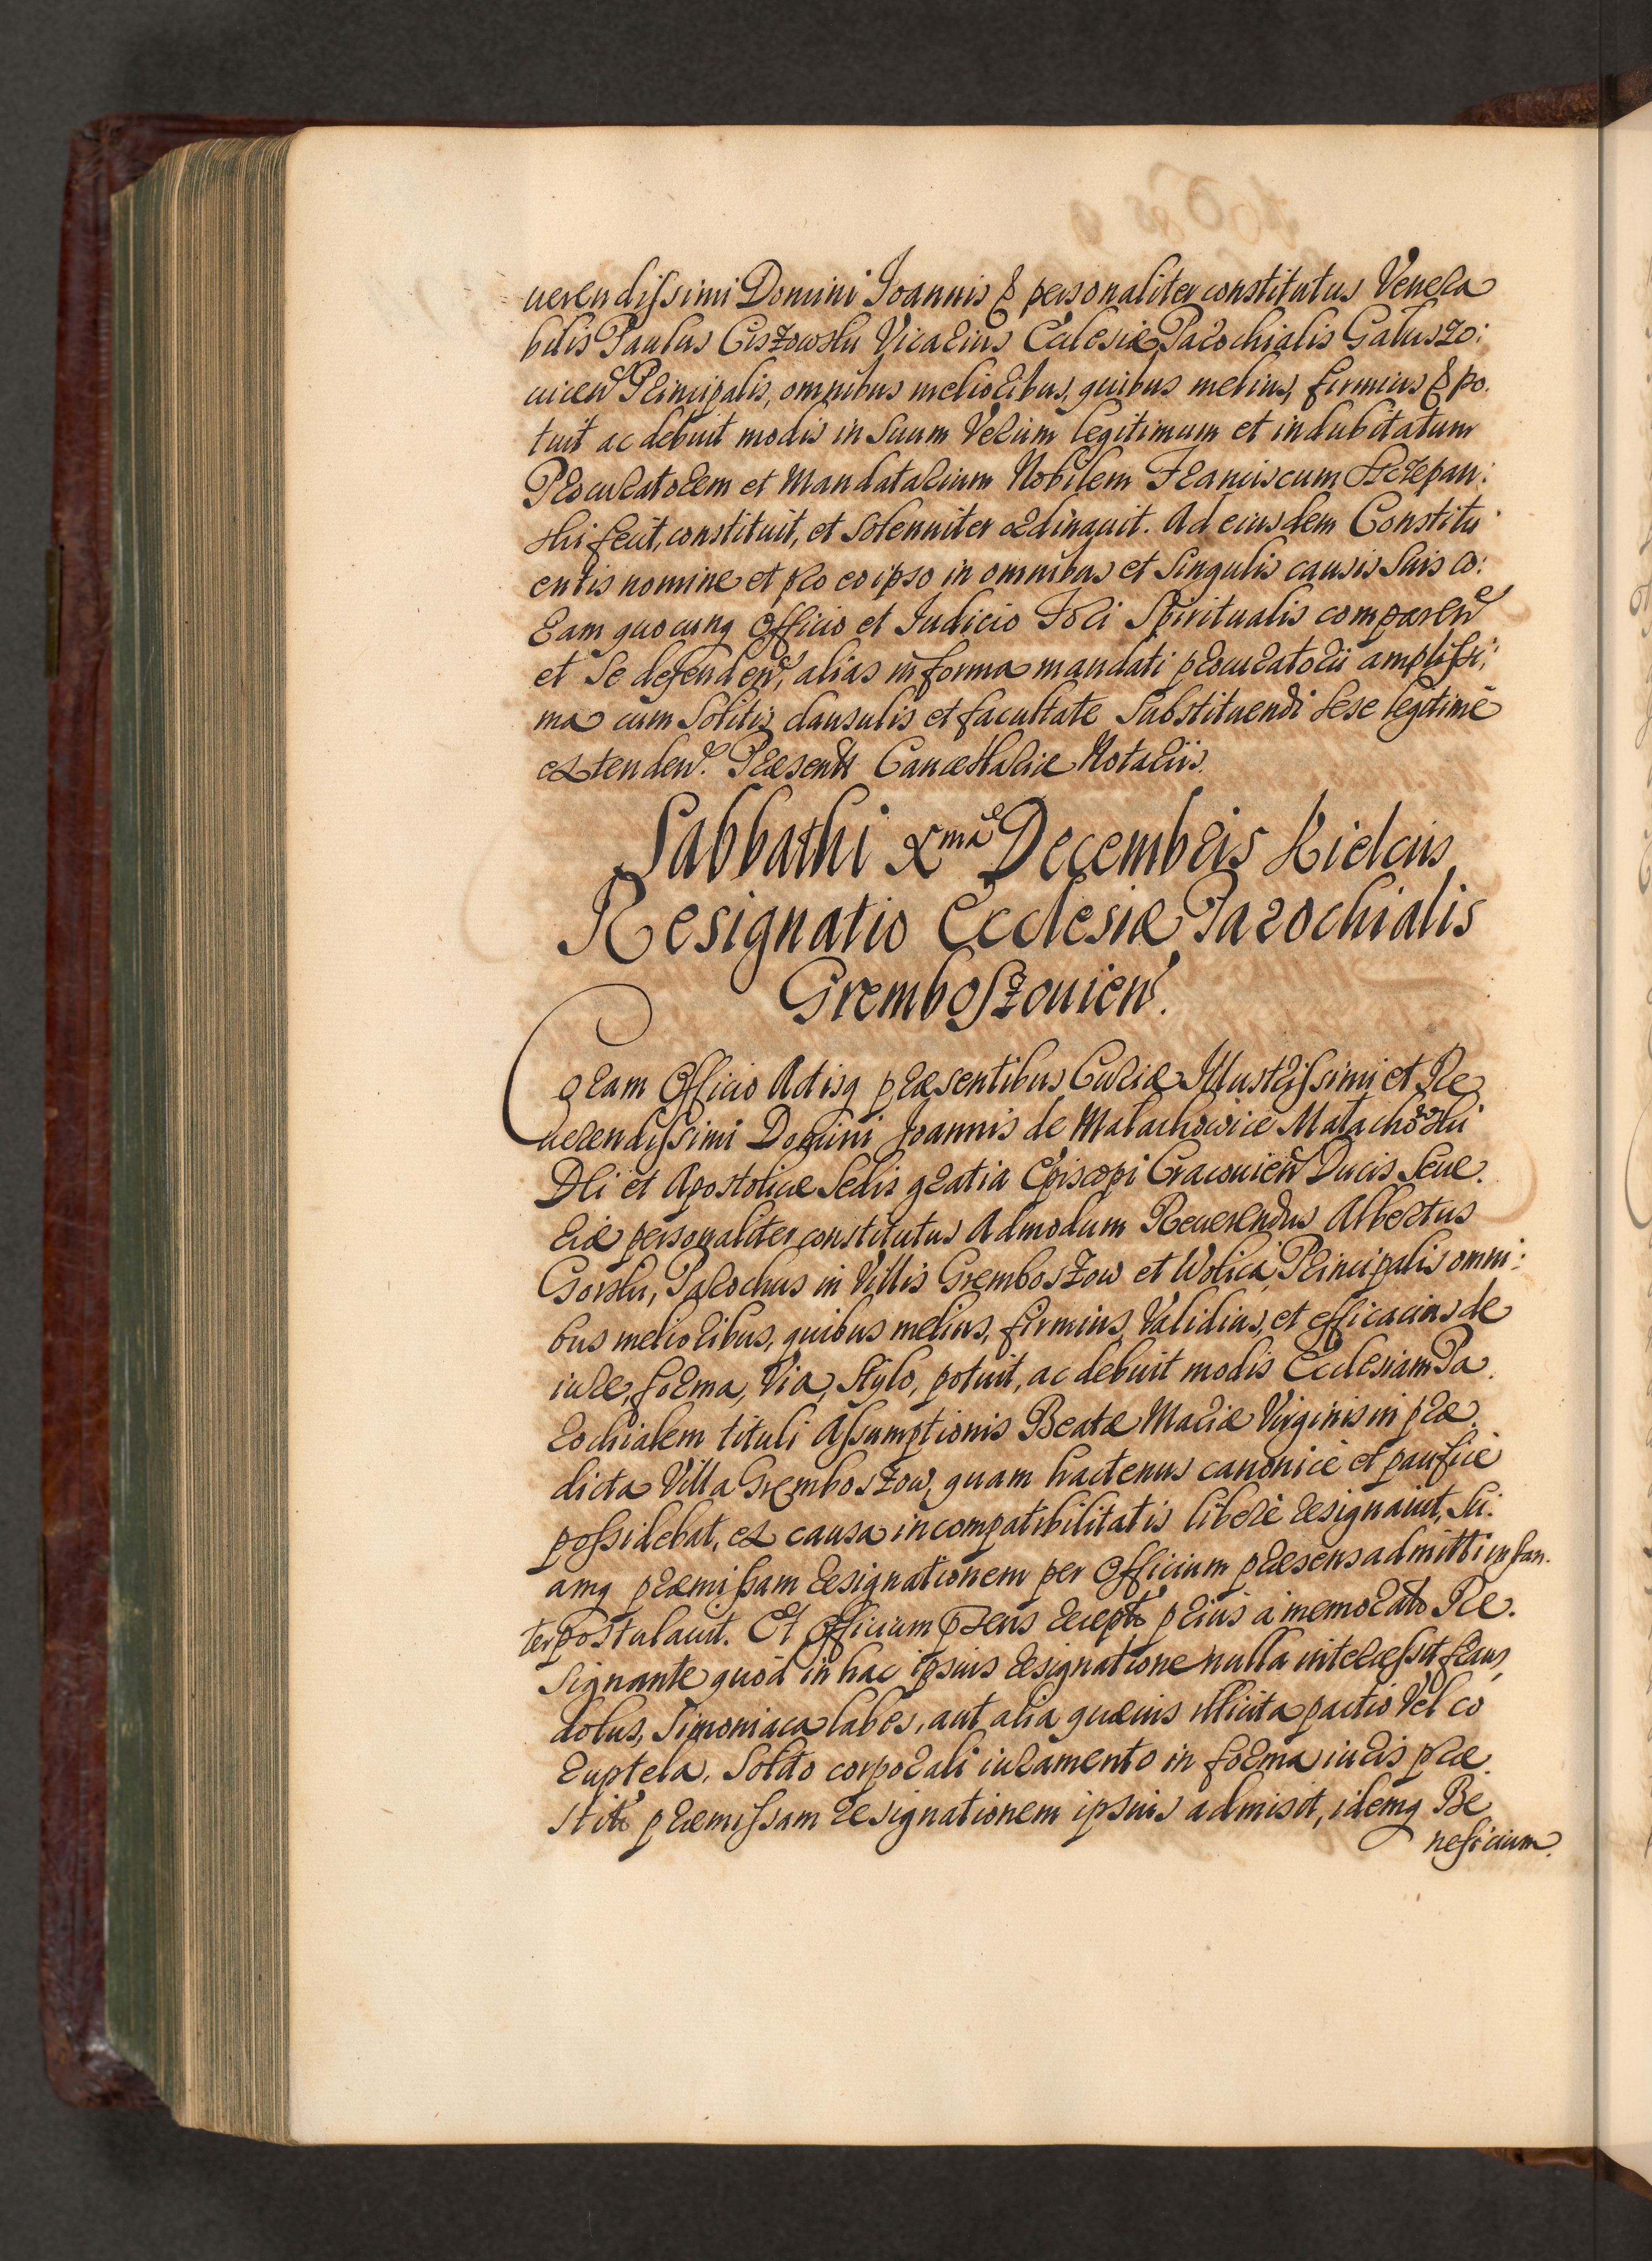 uerendissimi Domini Ioannis & personaliter constitutus Venera
bilis Paulus Ciszowski Vicarius Ecclesiæ Parochialis Galuszo:
uicen Principalis, omnibus melioribus, quibus melius, firmius & po.
tuit ac debuit modis in suum Verum legitimum et indubitatum
Procuratorem et Mandatarium Nobilem Franciscum Sczepan:
ski fecit, constituit, et solenniter ordinauit. Ad eiusdem Constitu
entis nomine et pro eo ipso in omnibus et singulis causis suis co:
ram quocunq Officio et Iudicio Fori Spiritualis comparen
et se defenden, alias in forma mandati procuratorii amplissi:
ma cum solitis clausulis et facultate substituendi sese legitimè
extenden. Præsentt Cancellariæ Notariis.
Sabbathi Xmâ Decembris Kielciis
Resignatio Ecclesiæ Parochialis
Gremboszouien.
Coram Officio Actisq præsentibus Curiæ Illustrissimi et Re
uerendissimi Domini Joannis de Małachowice Małachowski
Dei et Apostolicæ Sedis gratia Episcopi Cracouien Ducis Seue.
riæ personaliter constitutus Admodum Reuerendus Albertus
Gorski, Parochus in Villis Gremboszow et Wolica Principalis omni:
bus melioribus, quibus melius, firmius, Validius, et efficacius de
iure, forma, Via, stylo, potuit, ac debuit modis Ecclesiam Pa.
rochialem tituli Assumptionis Beatæ Mariæ Virginis in præ.
dicta Villa Gremboszow, quam hactenus canonicè et pacificè
possidebat, ex causa incompatibilitatis liberè resignauit, su:
amq præmissam resignationem per Officium præsens admitti instan.
ter postulauit. Et Officium præns recepto prius a memorato Re.
signante quòd in hac ipsius resignatione nulla intercessit fraus,
dolus, simoniaca labes, aut alia quæuis illicita pactio Vel co
ruptela, solito corporali iuramento in forma iuris præ.
stito præmissam resignationem ipsius admisit, idemq Be
neficium.